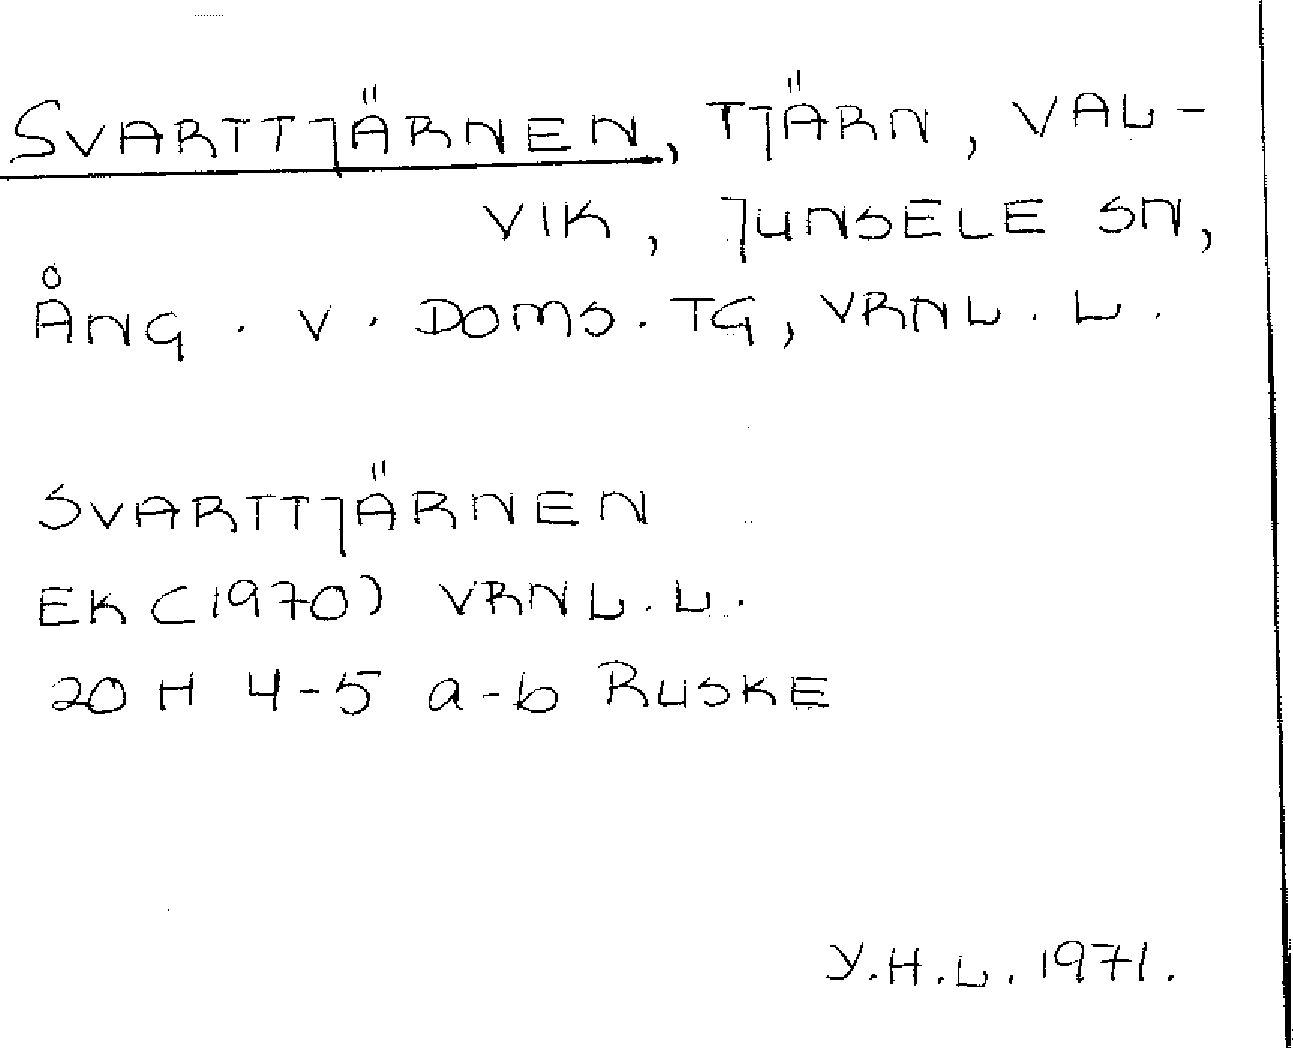 SVARTTJÄRNEN, TJÄRN, VAL-
VIK, JUNSELE SN,
ÅNG. V. DOMS. TG, VRNL. L.
SVARTTJÄRNEN
EK (1970) VRNL. L.
20 H 4-5 a-b RUSKE
Y.H.L. 1971.